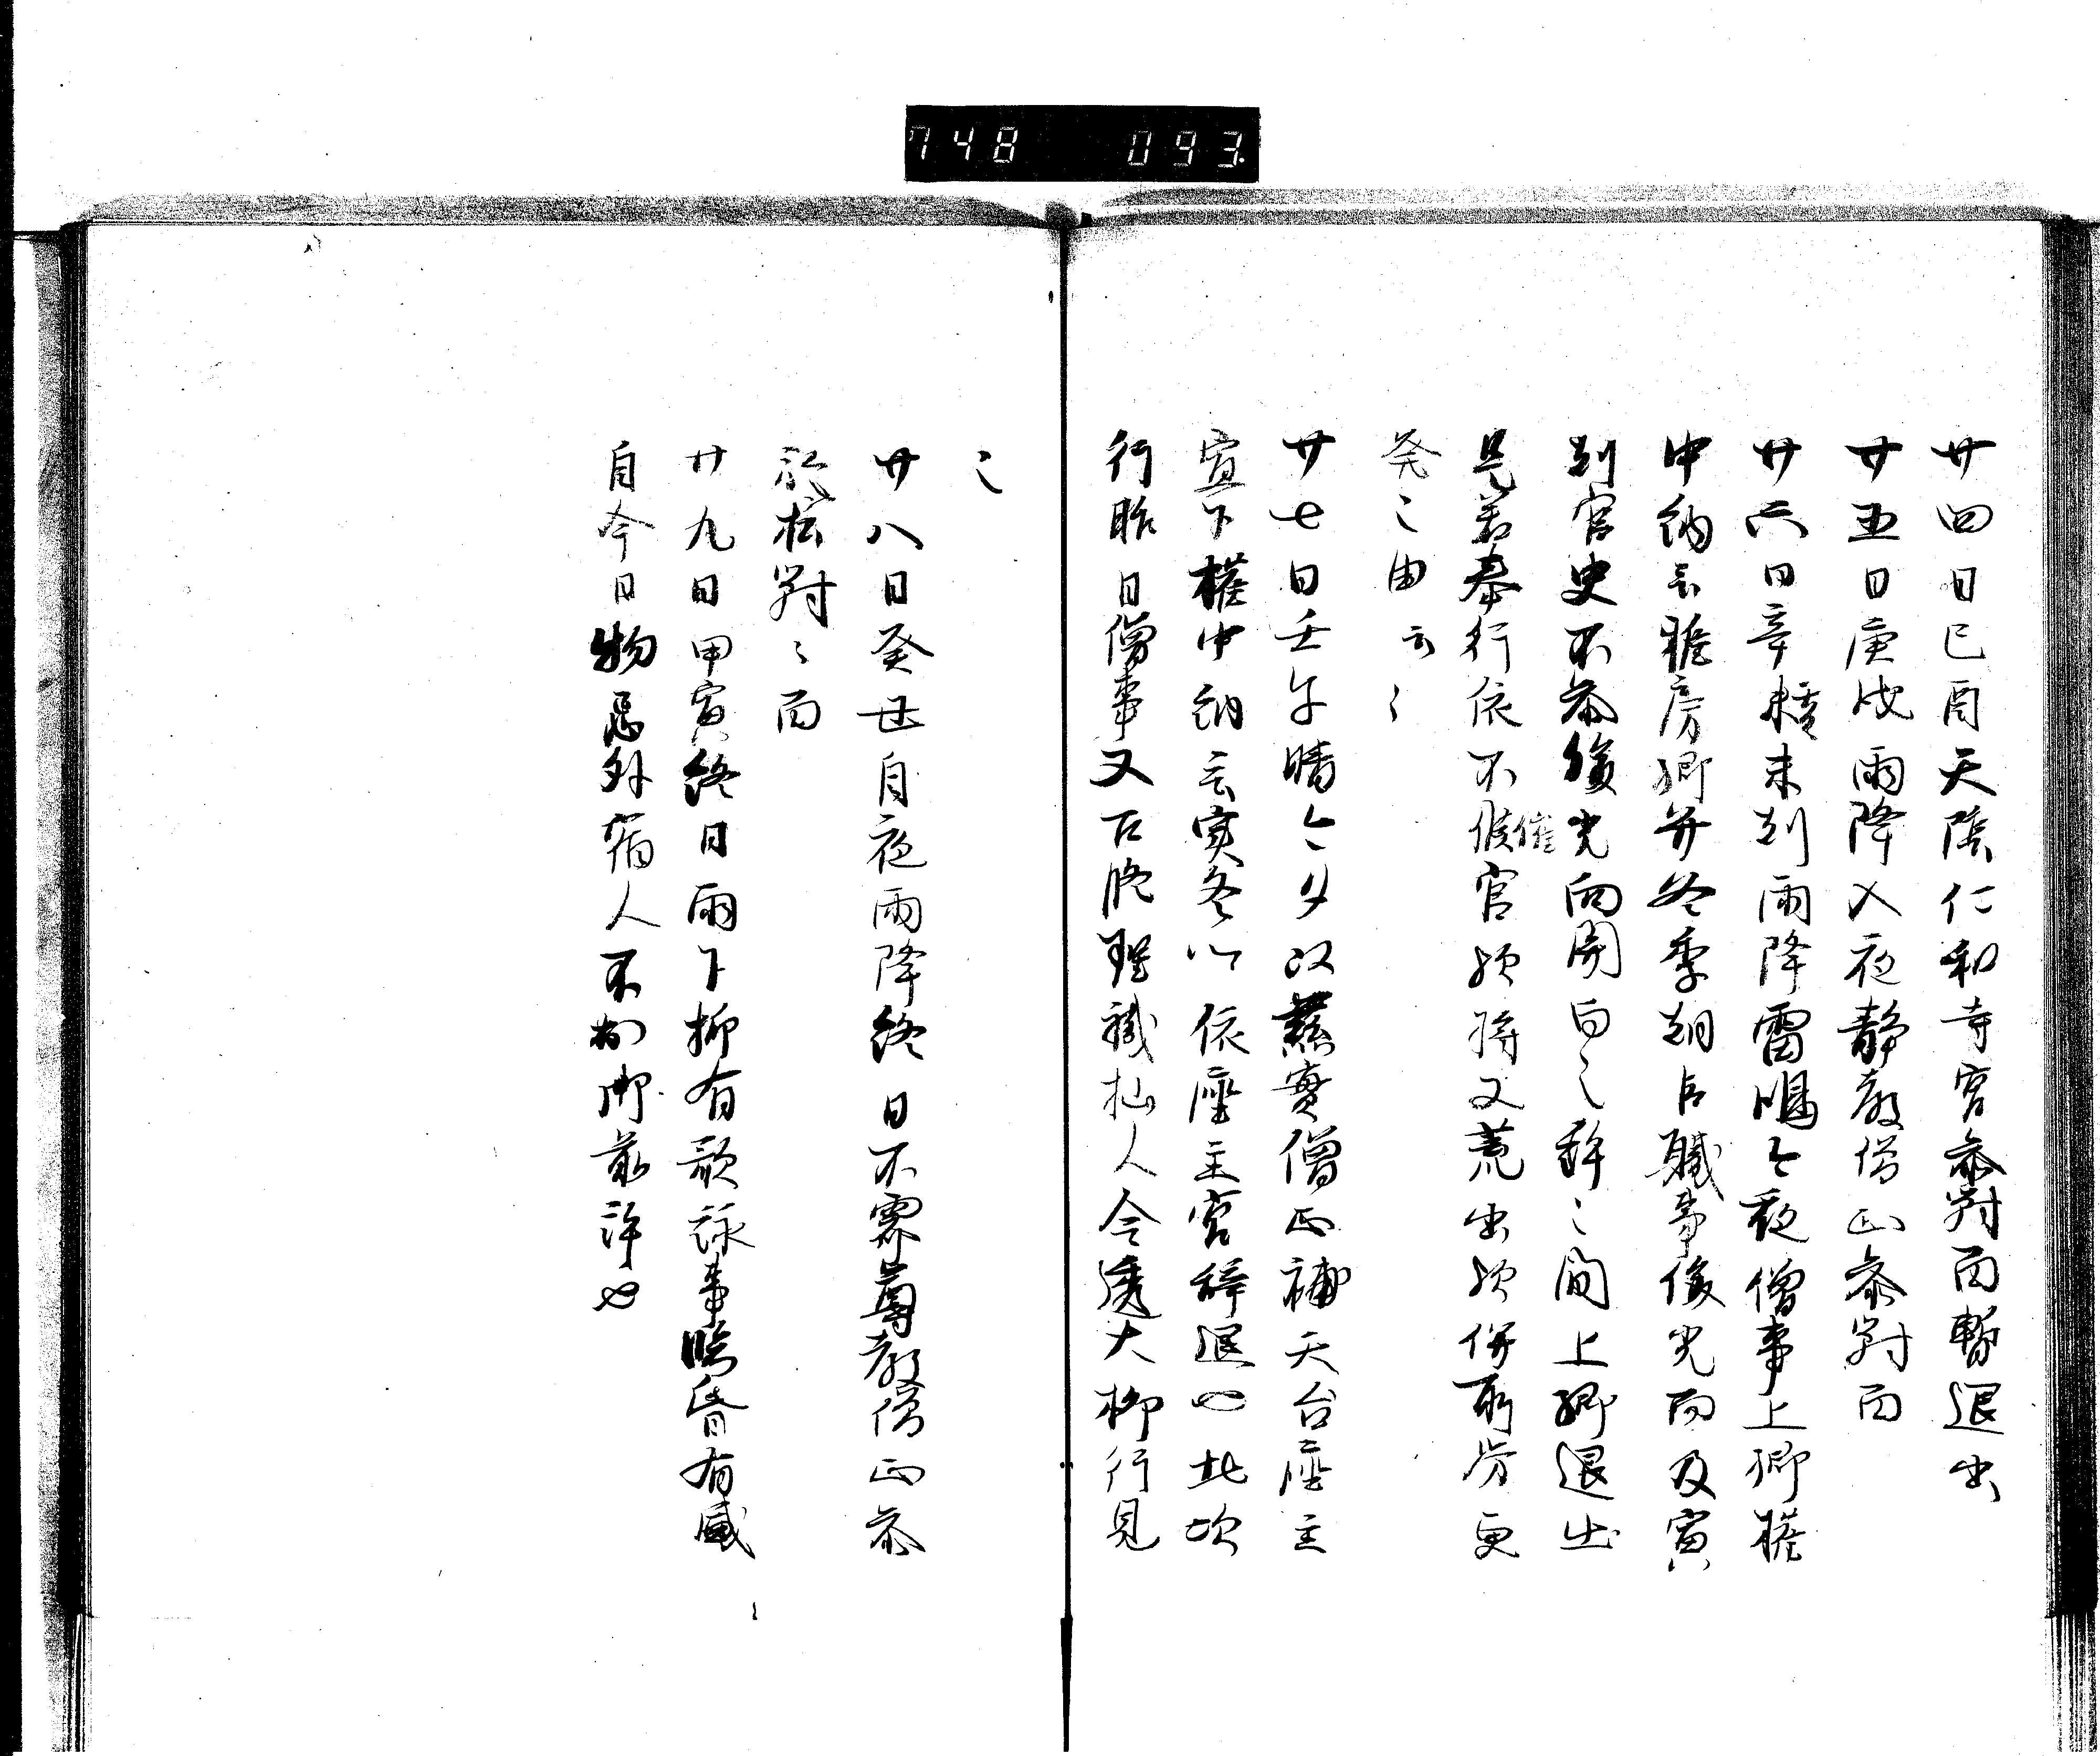 748 093
廿四日己酉天陰仁和寺宮参対面暫退出
廿五日庚戌雨降入夜静教僧正参対面
廿六日辛 未刻雨降雷鳴今夜僧事上卿権
中納言雅房卿并参季朝臣職事俊光而及寅
刻官史不参俊光向関白之辞之間上卿退出
是若奉行依不催候官欤将又荒出欤併所労更
発之由云々
廿七日壬午晴今夕以慈実僧正補天台座主
宣下権中納言実冬以依座主宮辞退也此次
行昨日僧事又 職 人今 大柳行見
之
廿八日癸丑自夜雨降終日不霽尊教僧正参
於 対々面
廿九日甲寅終日雨下柳有歌詠事臨昏有盛
自今日物忌外宿人不 御前許也